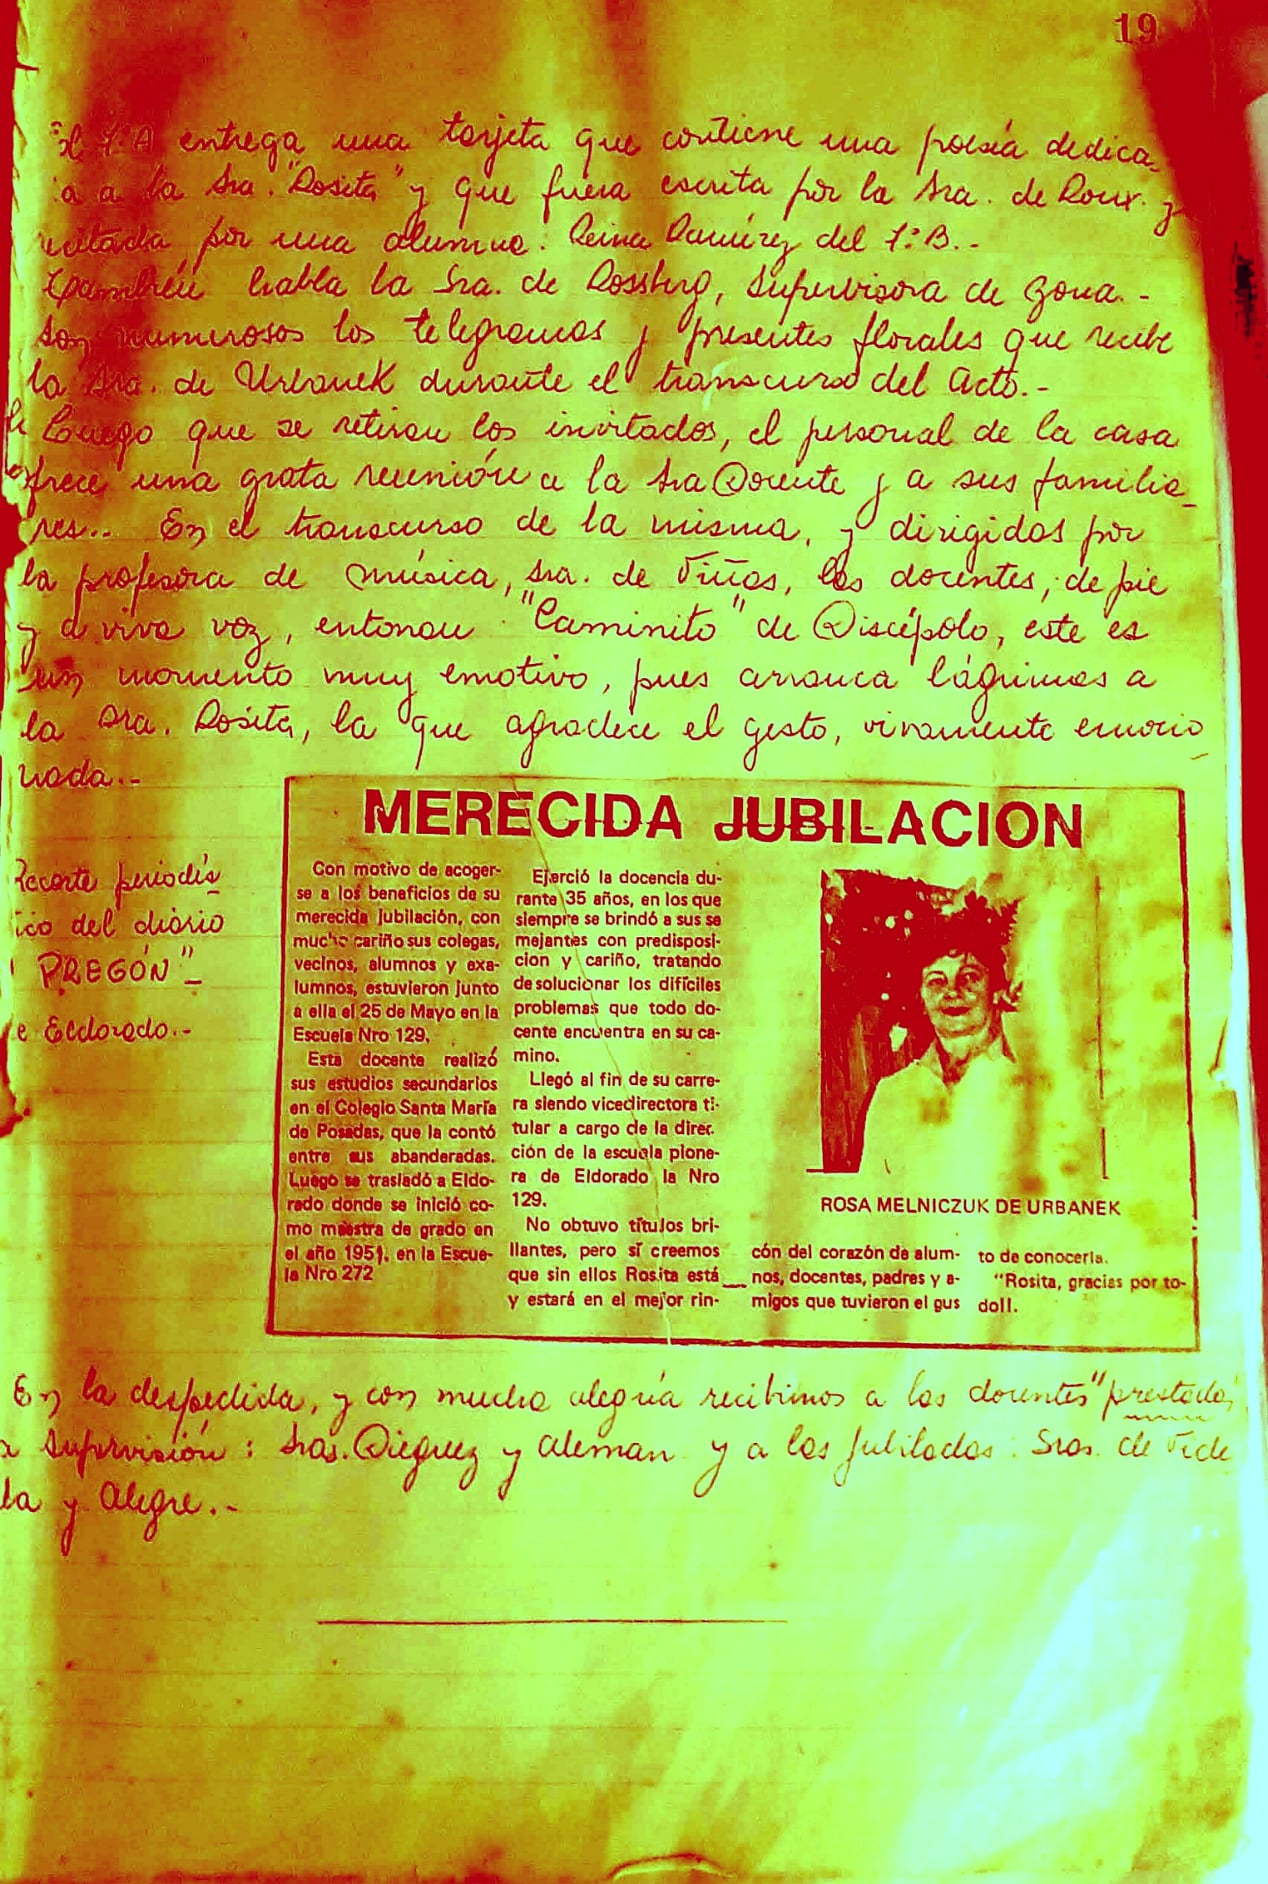 19
El 7°A entrega una tarjeta que contiene una poesía dedica_
a a la Sra. "Rosita" y que fuera escrita por la Sra. de Roux. y
recitada por una alumna: Reina Ramírez del 7°B.-
También habla la Sra. de Rossberg, Supervisora de zona.-
Son numerosos los telegramas y presentes florales que recibe
la Sra. de Urbanek durante el transcurso del Acto.-
Luego que se retiran los invitados, el personal de la casa
ofrece una grata reunión a la Sra Docente y a sus familia_
res.. En el transcurso de la misma, y dirigidos por
la profesora de música, Sra. de Viñas, los docentes, de pie
y a viva voz, entonan "Caminito" de Discépolo, este es
un momento muy emotivo, pues arranca lágrimas a
la Sra. Rosita, la que agradece el gesto, vivamente emocio_
nada.-
Recorte periodís_
ico del diario
"PREGÓN"_
e Eldorado.-
MERECIDA JUBILACION
Con motivo de acoger-
se a los beneficios de su
merecida jubilación, con
mucho cariño sus colegas,
vecinos, alumnos y exa-
lumnos, estuvieron junto
a ella el 25 de Mayo en la
Escuela Nro 129.
Esta docente realizó
sus estudios secundarios
en el Colegio Santa María
de Posadas, que la contó
entre sus abanderadas.
Luego se trasladó a Eldo-
rado donde se inició co-
mo maestra de grado en
el año 1951, en la Escue-
la Nro 272
Ejerció la docencia du-
rante 35 años, en los que
siempre se brindó a sus se
mejantes con predisposi-
cion y cariño, tratando
de solucionar los difíciles
problemas que todo do-
cente encuentra en su ca-
mino.
Llegó al fin de su carre-
ra siendo vicedirectora ti-
tular a cargo de la direc-
ción de la escuela pione-
ra de Eldorado la Nro
129.
No obtuvo títulos bri-
llantes, pero sí creemos
que sin ellos Rosita está
y estará en el mejor rin-
ROSA MELNICZUK DE URBANEK
cón del corazón de alum-
nos, docentes, padres y a-
migos que tuvieron el gus
to de conocerla.
"Rosita, gracias por to-
do!!.
En la despedida, y con mucha alegría recibimos a las docentes "prestadas
a Supervisión: Sras. Dieguez y Aleman y a las jubiladas: Sras. de Vide
la y Alegre.-